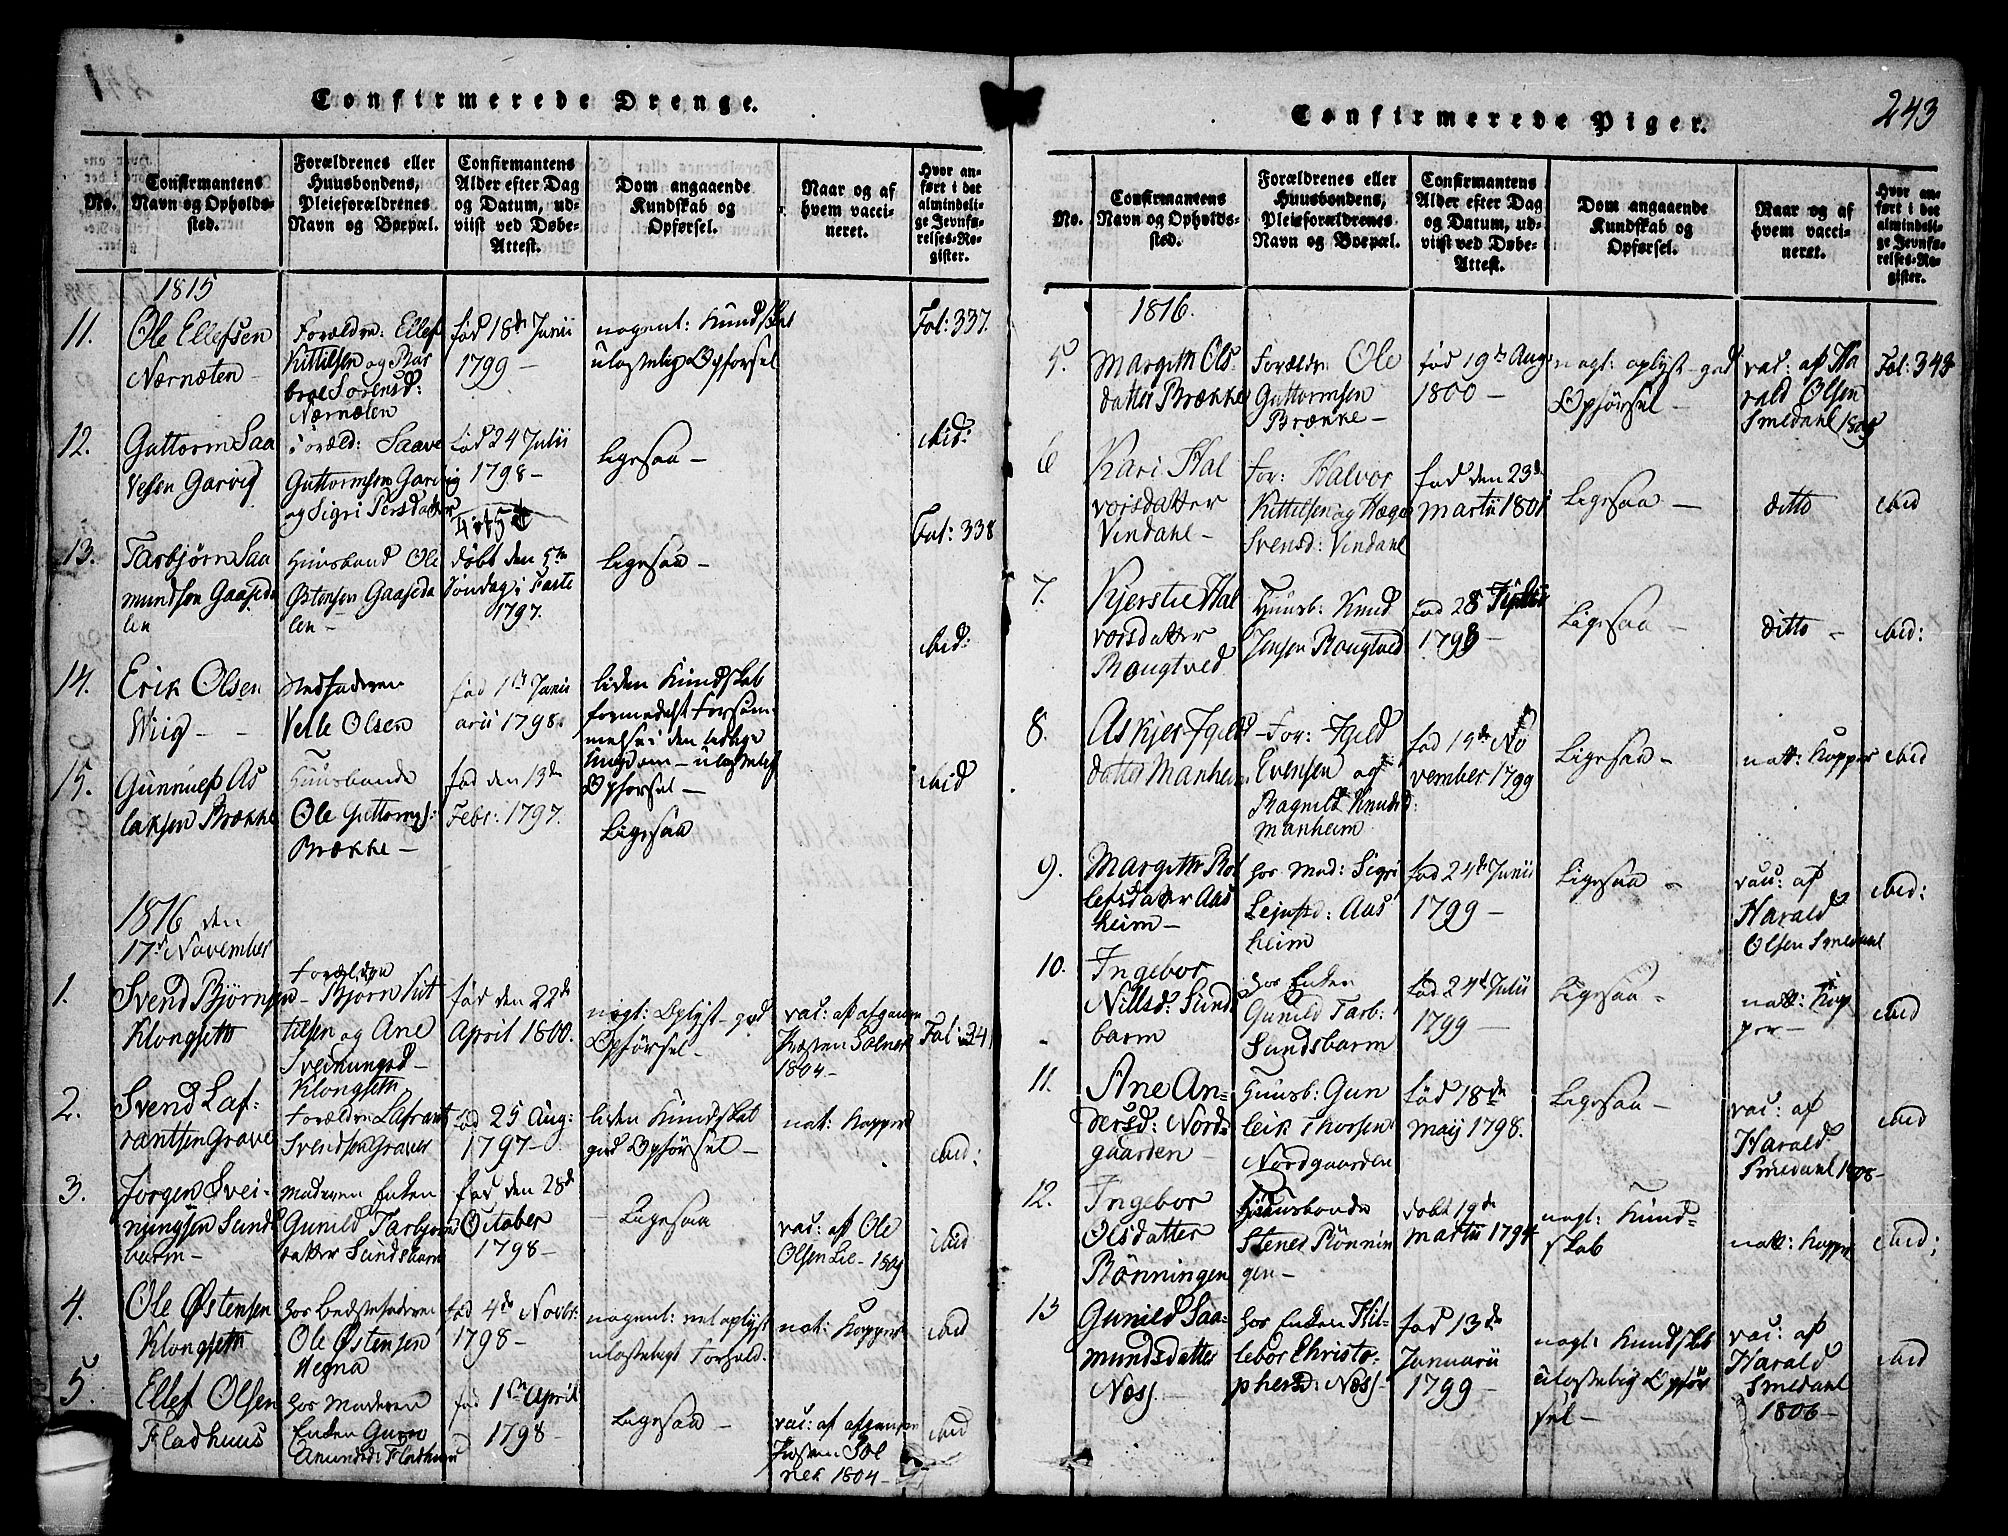 Confirmerede Drenge.
No.
Confirmantens
Navn og Opholds-
sted.
Forældrenes eller
Huusbondens,
Pleieforældrenes
Navn og Boepæl.
Confirmantens
Alder efter Dag
og Datum, ud-
viist ved Døbe-
Attest.
Dom angaaende
Kundskab og
Opførsel.
Naar og af
hvem vacci-
neret.
Hvor an-
ført i det
almindeli-
ge Jevnfø-
relses-Re-
gister.
1815
11.
Ole Ellefsen
Nærnæten
Forældre: Ellef
Kittilsen og
Sørensd:
Nærnæten
fød 18de Junii
1799 -
nogenl: Kundskab
ulastelig Opførsel
Fol: 337.
12.
Guttorm Saa
vesen Garvig
Foræld: Saave
Guttormsen Garvig
og Sigri Persdatter
fød 24 Julii
1798 -
Ligesaa -
ibid:
13.
Tarbjørn Saa
mundsøn Gaaseda
len
Huusbond Ole
Østensen Gaaseda
len -
døbt den 5te
Søndag i Faste
1797.
Ligesaa -
Fol: 338
14.
Erik Olsen
Wiig - -
Stedfaderen
Vetle Olsen
fød 1ste Janu
arii 1798.
liden Kundskab
formedelst Forsøm-
melse i den tidlige
Ungdom - ulastelig
Opførsel -
ibid:
15.
Gunnulf As
laksen Brække
Huusbonde
Ole Guttorms:
Brække -
fød den 13de
Febr: 1797.
Ligesaa
ibid
1816 den
17de November
1.
Svend Bjørnsen
Klongseth
Forældre
- Bjørn Kit
tilsen og Ane
Sveinungsd -
Klongseth
fød den 22de
April 1800.
nogl: Oplyst - god
Opførsel -
vac: af afgangne
Præsten Sølner
1804 -
Fol: 341
2.
Svend Laf-
rantsen Grave
Forældre Lafrants
Svendsen Graver
fød 25 Aug:
1797 -
liden Kundskab
god Opførsel -
nat: Kopper
ibid:
3.
Jørgen Svei-
nungsen Sunds
barm -
Moderen Enken
Gunild Tarbjørns
datter Sundsbarm
fød den 28de
October
1798 -
- Ligesaa
vac: af Ole
Olsen Lie - 1809
ibid
4.
Ole Østensen
Klongseth
hos Bedstefaderen
Ole Østensen
Hegna
fød 4de Novbr:
1798 -
nogenl: vel oplyst
ulasteligt Forhold.
nat: Kopper
ibid
5.
Ellef Olsen
Fladhuus
hos Moderen
Enken Guro
Amundsd: Fladhuus
fød 1ste April
1798 -
Ligesaa -
vac: af afgangne
Præsten Søl
ner 1804 -
ibid
Confirmerede Piger.
243
No.
Confirmantens
Navn og Opholds-
sted.
Forældrenes eller
Huusbondens,
Pleieforældrenes
Navn og Boepæl.
Confirmantens
Alder efter Dag
og Datum, ud-
viist ved Døbe-
Attest.
Dom angaaende
Kundskab og
Opførsel.
Naar og af
hvem vacci-
neret.
Hvor an-
ført i det
almindeli-
ge Jevnfø-
relses-Re-
gister.
1816.
5.
Margith Ols-
datter Brække
Forældr: Ole
Guttormsen
Brække -
fød 19de Aug:
1800 -
nogl: oplyst - god
Opførsel -
vac: af Ha
rald Olsen
Smedahl 1809
Fol: 343
6
Kari Hal
vorsdatter
Vindahl -
For: Halvor
Kittilsen og Hæge
Svensd: Vindahl
fød den 23de
Martii 1801
Ligesaa -
ditto
ibid
7.
Kjerstie Hal
vorsdatter
Rougtved
Huusb: Knud
Jensen Rougtved
fød 28
1798 -
Ligesaa -
ditto -
ibid:
8.
Askjer Igeld
datter Manheim
For: Igeld
Evensen og
Ragnild Knudsd:
Manheim
fød 19de No
vember 1799
Ligesaa -
nat: Kopper
ibid
9.
Margith Rol
lefsdatter Aas
heim -
hos Mod: Sigri
Lejufsd: Aas
heim
fød 24de Junii
1799 -
Ligesaa -
vac: af
Harald
Olsen Smedahl
ibid:
10.
Ingebor
Nillsd: Sunds
barm
hos Enken
Gunild Tarb:
Sundsbarm
fød 24de Julii
1799 -
Ligesaa -
nat: Kop
per -
ibid
11.
Ane An-
dersd: Nord-
gaarden -
Huusb: Gun
leik Thorsen
Nordgaarden
fød 18de
Maij 1798.
Ligesaa -
vac: af
Harald
Smedahl 1808 -
ibid
12.
Ingebor
Olsdatter
Rønningen
Huusbonde
Stener Rønnin
gen -
døbt 19de
Martii 1794
nogl: Kund-
skab
nat: Kopper
ibid;
13
Gunild Saa-
mundsdatter
Næss -
hos Enken Hil-
lebor Christo-
phersd: Næss -
fød 13de
Januarii
1799 -
nogl: Kundskab
ulastelig Opfør
sel -
vac: af
Harald
Smedahl
1806 -
ibid